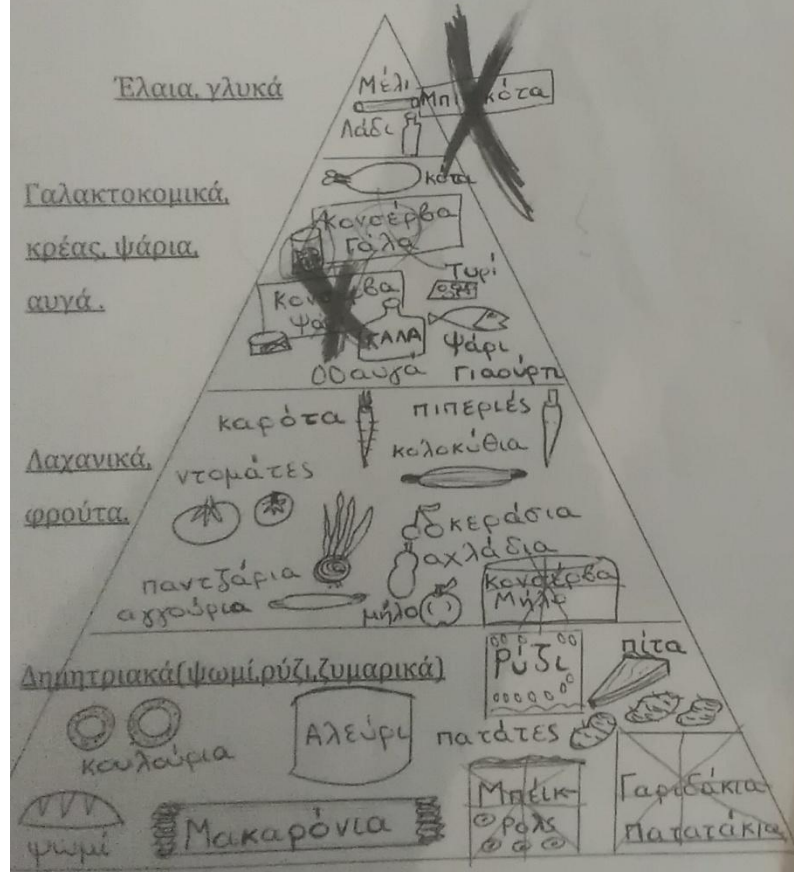 Έλαια, γλυκά
Μέλι
Μπισκότα
Λάδι
Γαλακτοκομικά,
κρέας, ψάρια,
αυγά .
κότα
Κονσέρβα
Γάλα
Τυρί
Κονσέρβα
Ψάρι
ΓΑΛΑ
ψάρι
αυγά
Γιαούρτι
Λαχανικά,
φρούτα.
καρότα
πιπεριές
κολοκύθια
ντομάτες
κεράσια
αχλάδια
παντζάρια
αγγούρια
μήλο
Κονσέρβα
Μήλο
Δημητριακά(ψωμί,ρύζι,ζυμαρικά)
Ρύζι
πίτα
κουλούρια
Αλεύρι
πατάτες
ψωμί
Μακαρόνια
Μπέικ-
Ρολς
Γαριδάκια
Πατατάκια